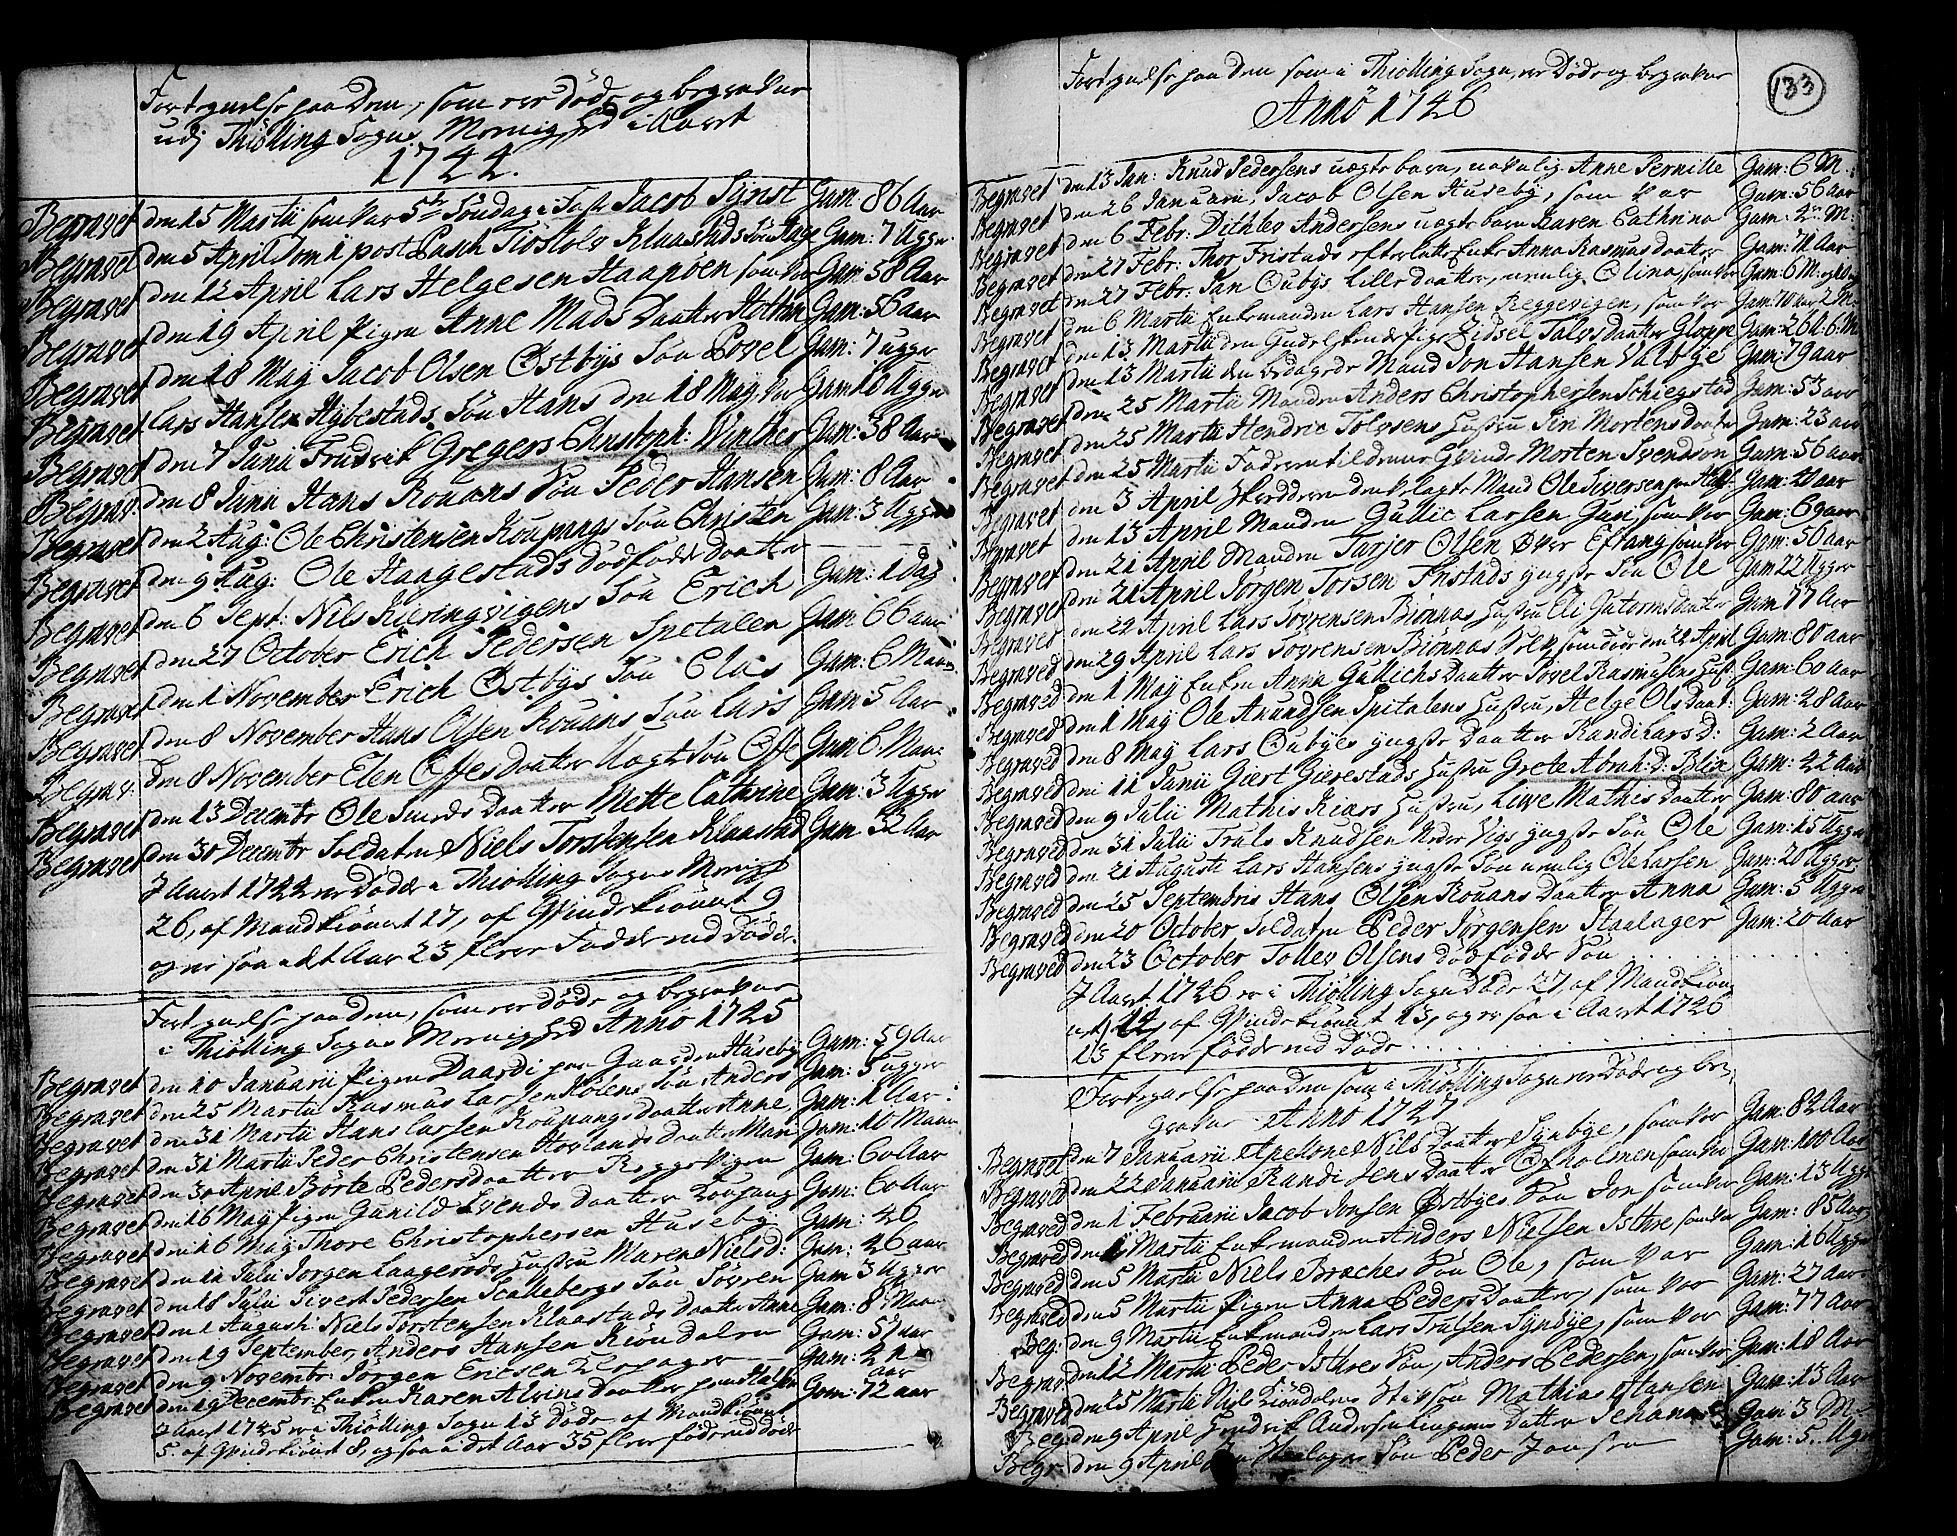 Fortegnelse paa Dem, som ere døde og begravne
udj Thiølling Sogns Menighed i Aaret
1744.
Begravet den 15 Martii som var 5te Søndag i Faste Jacob Gam: 86 Aar
Begravet den 5 April Dom 1 post Pasch Klaastads Søn Gam: 7 Ugger
Begravet den 12 April Lars Helgesen Haapøen som var Gam: 58 Aar
Begravet den 19 April Pigen Anne Mads Daatter Gam: 56 aar
Begravet den 18 Maij Jacob Olsen Østbys Søn Povel Gam: 7 ugger
Begravet Lars Hansen Søn Hans den 18 Maij, var Gam 10 Ugger
Begravet den 7 Junii Gregers Christoph: Winther Gam: 38 Aar
Begrav: den 8 Junii Hans Rouans Søn Peder Hansen Gam: 8 Aar
Begravet den 2 Aug: Ole Christensen Koupangs Søn Christen Gam: 3 Ugger
Begravet den 9 Aug: Ole Haagestads dødfødde Daatter
Begravet den 6 Sept: Nils Kieringvigens Søn Erich Gam: 1 Dag
Begravet den 27 October Erich Pedersen Spetalen Gam 66 aar
Begravet den 1 November Erich Østbys Søn Clas Gam: 6 Maan:
Begravet den 8 November Hans Olsen Rouans Søn Lars Gam: 5 Aar
Begrav: den 8 November Elen Offes Daatter Uægte Søn Offe Gam: 6 Maan:
Begravet den 13 Decembr Ole Daatter Mette Cathrine Gam: 3 Ugger
Begravet den 30 Decembr Soldaten Niels Torstensen Klaastad Gam 32 Aar
J Aaret 1744 ere Døde i Thiølling Sogns Menigh
26, af Mandkiønnet 17, af Qvindekiønnet 9
og er saa i det Aar 23 flere Fødde end Døde.
Fortegnelse paa Dem, som ere Døde og begravne
i Thiølling Sogns Menighed Anno 1745
Begravet den 10 Januarii Pigen Daardi paa Gaarden Huseby Gam: 59 Aar
Begravet den 25 Martii Rasmus Larsen Søn Anders Gam: 5 ugger
Begravet den 31 Martii Hans Larsen Koupangs daatter Anne, Gam: 1 Aar
Begravet den 31 Martii Peder Christensen Hovlands Daatter Mari Gam: 10 Maan
Begravet den 30 April Børte Pedersdaatter Reggevigen Gam: 60 Aar
Begravet den 16 Maij Pigen Gunild Svends Daatter Gam: 60 Aar
Begravet den 16 Maij Thore Christophersen Huseby Gam: 46
Begravet den 11 Julii Jørgen Laagerøds Hustru Maren Nielsd: Gam: 26 aar
Begravet den 18 Julii Sivert Pedersen Scallebergs Søn Søvren Gam 3 Ugger
Begravet den 1 Augusti Niels Torstensen Klaastads Daatter Anne Gam: 8 Maan
Begravet den 19 September Anders Hansen Kiøndalen Gam: 57 aar
Begravet den 9 Novembr: Jørgen Ericsen Gam: 21 aar
Begravet den 19 Decembr Enken Karen Daatter paa Gam: 72 aar
J Aaret 1745 ere i Thiølling Sogn 13 Døde af Mandkiønnet
5. af Qvindekiønnet 8, og saa i det Aar 35 flere fødde end døde
133
Fortegnelse paa Dem som i Thiølling Sogn, ere Døde og begravne
Anno 1746
Begravet den 13 Jan: Knud Pedersens uægte barn, navnlig Anne Pernille Gam: 6 M:
Begravet den 26 Januarii, Jacob Olsen Huseby, som var Gam: 56 aar
Begravet den 6 Febr: Dithlev Andersens uægte barn Karen Cathrina Gam: 2 M:
Begravet den 27 Febr: Thor Fristads efterlatte Enke Anna Rasmusdaatter Gam: 71 Aar
Begravet den 27 Febr: Jan Oubys lille daatter, nemlig Olina, som var Gam: 6 M:
Begravet den 6 Martii Enkemanden Lars Hansen Reggevigen, som var Gam: 70 aar 2 M.
Begravet den 13 Martii den Gudelskende Pige Sidsel Talvsdaatter Gloppe Gam: 26 A. 6: M
Begravet den 13 Martii den Bedagede Mand Jon Hansen Valbye Gam: 79 aar
Begravet den 25 Martii Manden Anders Christophersen Schiegstad Gam: 53 aar
Begravet den 25 Martii Hendric Tolvsens Hustru Siri Mortensdaatter Gam: 23 aar
Begravet den 25 Martii Faderen til denne Qvinde Morten Svendsøn Gam: 56 aar
Begravet den 3 April Mand Ole Siversen paa Gam: 41 aar
Begravet den 13 April Manden Gullic Larsen Gui, som var Gam: 69 aar
Begravet den 21 April Manden Tarjer Olsen Øvre Eftang som var Gam: 56 aar
Begravet den 21 April Jørgen Torsen Fristads yngste Søn Ole Gam 22 Ugger
Begravet den 22 April Lars Søvrensen Biønnæs Hustru Eli Gutormsdaatter Gam 77 Aar
Begraved den 29 April Lars Søvrensen Biønnæs som døde den 22 April Gam: 80 aar
Begraved den 1 Maij Enken Anna Gullichs Daatter Povel Rasmusens Gam: 60 aar
Begraved den 1 Maij Ole Amundsen Spitalens Hustru, Helge Ols Daat: Gam: 48 Aar
Begraved den 8 Maij Lars Oubyes yngste Daatter Randi Lars D: Gam: 2 Aar
Begraved den 11 Junii Giert Gierestads Hustru Grete Abrah: D: Blix Gam: 42 Aar
Begraved den 9 Julii Mathis Kiærs Hustru, Live Mathis Daatter Gam: 80 aar
Begraved den 31 Julii Truls Knudsen Neder Vigs yngste Søn Ole Gam: 15 Ugger
Begraved den 21 Augusti Lars Hansens yngste Søn nemlig Ole Larsen Gam: 20 Ugger
Begraved den 25 Septembris Hans Olsen Rouans Daatter Anna Gam: 5 Ugger
Begraved den 20 October Soldaten Peder Jørgensen Haalager Gam: 20 Aar
Begraved den 23 October Tollev Olsens dødfødde Søn
J Aaret 1746 ere i Thiølling Sogn Døde 27, af Mandkiøn-
net, af Qvindekiønnet 13, og er saa i Aaret 1746
23 flere fødde end Døde
Fortegnelse paa Dem som i Thiølling Sogn ere Døde og be-
gravne Anno 1747
Begravet den 7 Januarii Apellone Nils Daatter Synbye, som var Gam: 82 Aar
Begraved den 22 Januarii Randi Jens Daatter Ofsholmen som var Gam: 100 Aar
Begraved den 1 Februarii Jacob Jonsen Østbyes Søn Jon som var Gam: 13 Ugger
Begraved den Martii Enkemanden Anders Nielsen Isthre, som var Gam: 85 Aar
Begraved den 5 Martii Niels Braches Søn Ole, som var Gam: 16 Ugger
Begraved den 5 Martii Pigen Anna Peders Daatter, som var Gam: 27 Aar
Beg: den 9 Martii Enkemanden Lars Trulsen Synbye, som var Gam: 77 Aar
Begrav den 12 Martii Peder Isthres Søn, Anders Pedersen, som var Gam: 18 Aar
Begraved den 25 Martii Nils Kiøndalens Stifsøn Mathias Hansen Gam: 13 Aar
Beg: den 9 April Hendrik Andersen Daatter Gam 3 M-
Begr: den 9 April Jon Haalager Søn Peder Jonsen Gam: 5. Uger